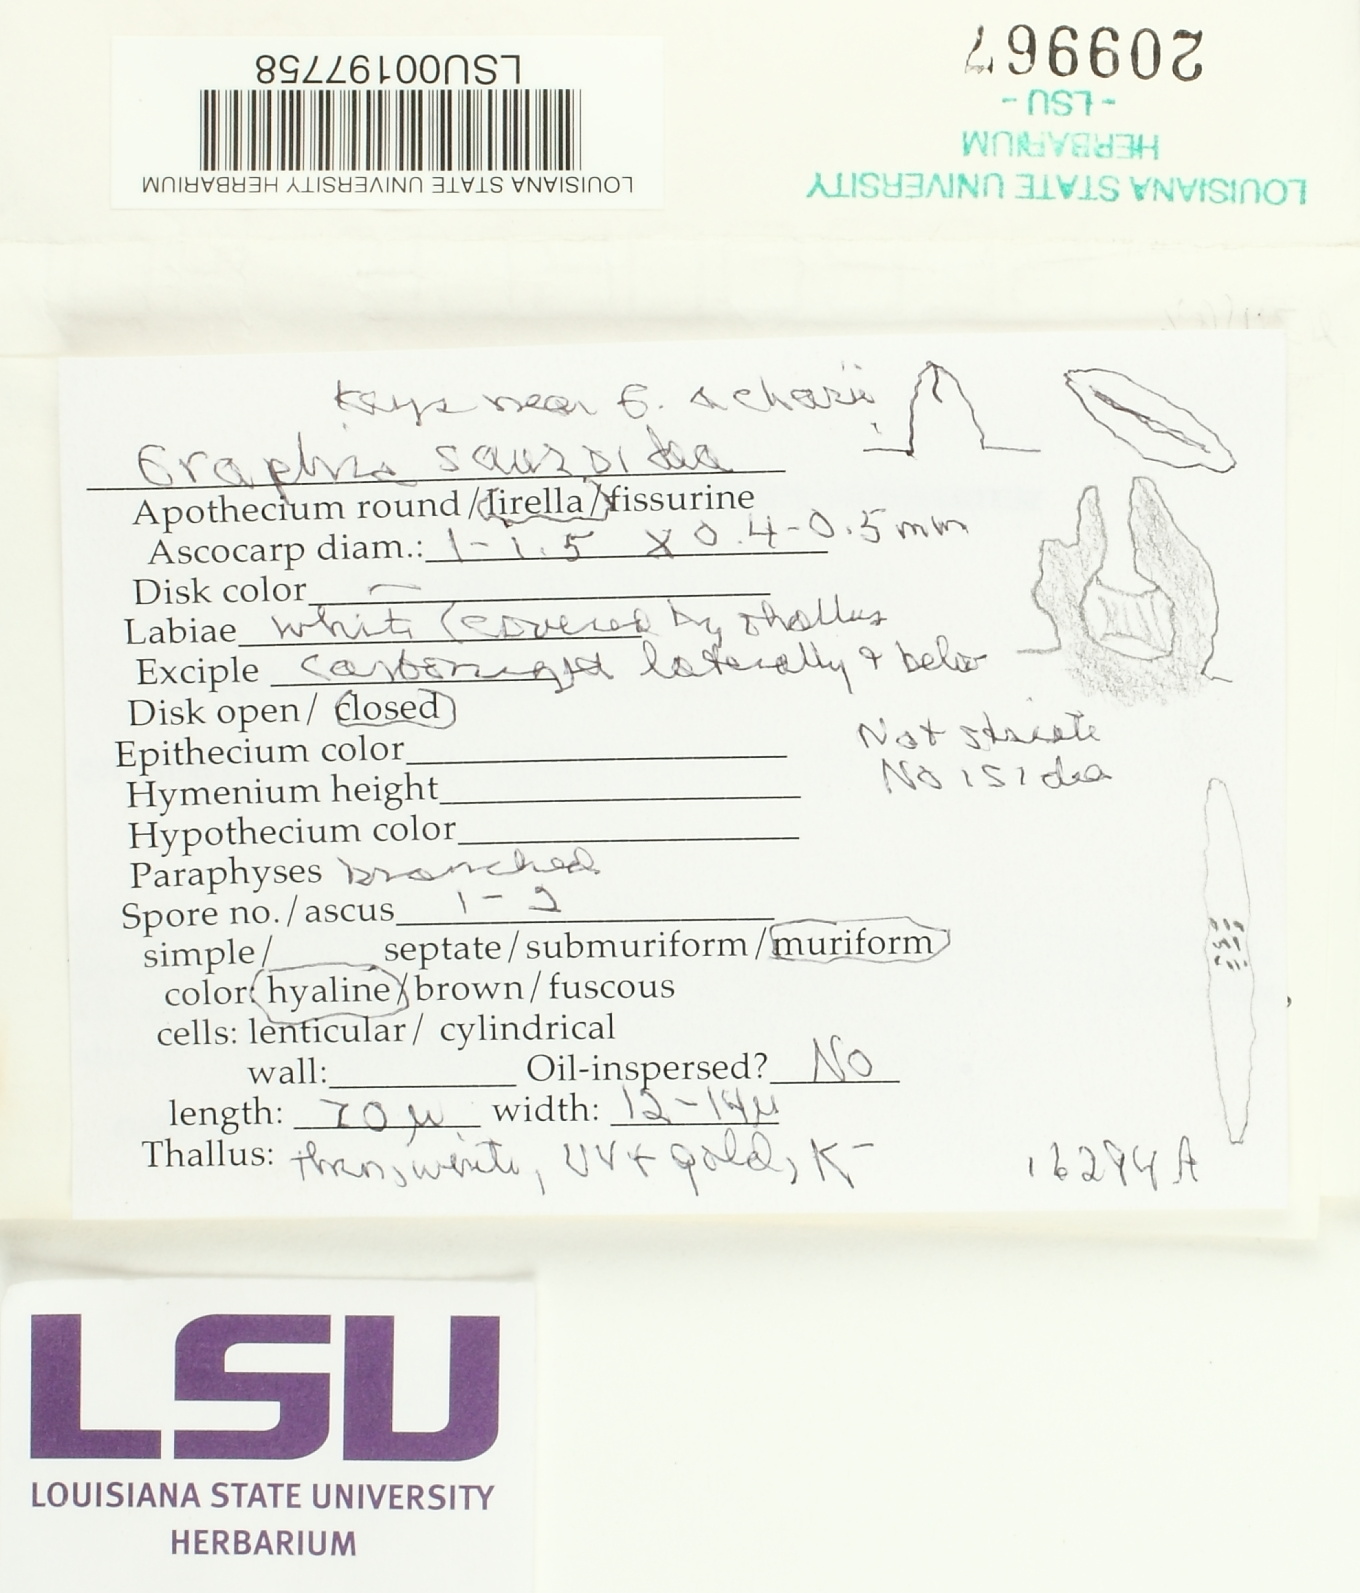 209967
- LSU -
HERBARIUM
LOUISIANA STATE UNIVERSITY
LSU00197758
LOUISIANA STATE UNIVERSITY HERBARIUM
Keys near G. acharii
Graphina sauroidea
Apothecium round/lirella/fissurine
Ascocarp diam.: 1-1.5 x 0.4-0.5 mm
Disk color —
Labiae white (covered by thallus
Exciple carbonized laterally & below
Disk open/ closed
Epithecium color
Not striate
Hymenium height
No isidia
Hypothecium color
Paraphyses branched
Spore no./ascus 1-2
simple/ septate/submuriform/muriform
color: hyaline/brown/fuscous
cells: lenticular/ cylindrical
wall: Oil-inspersed? No
length: 70 µ width: 12-14µ
Thallus: white, UV+ gold, K-
16294A
LSU
LOUISIANA STATE UNIVERSITY
HERBARIUM